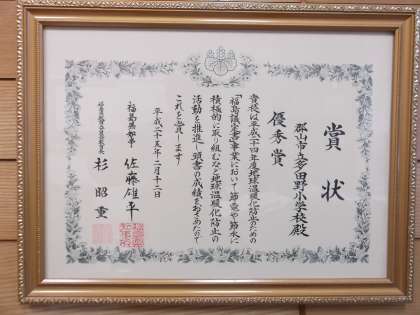 賞状
郡山市立多田野小学校殿
優秀賞
貴校は平成二十四年度地球温暖化防止のための
「福島議定書」事業において節電や節水に
積極的に取り組むなど地球温暖化防止の
活動を推進し頭書の成績をおさめたので
これを賞します
平成二十五年二月十二日
福島県知事 佐藤雄平
杉 昭重